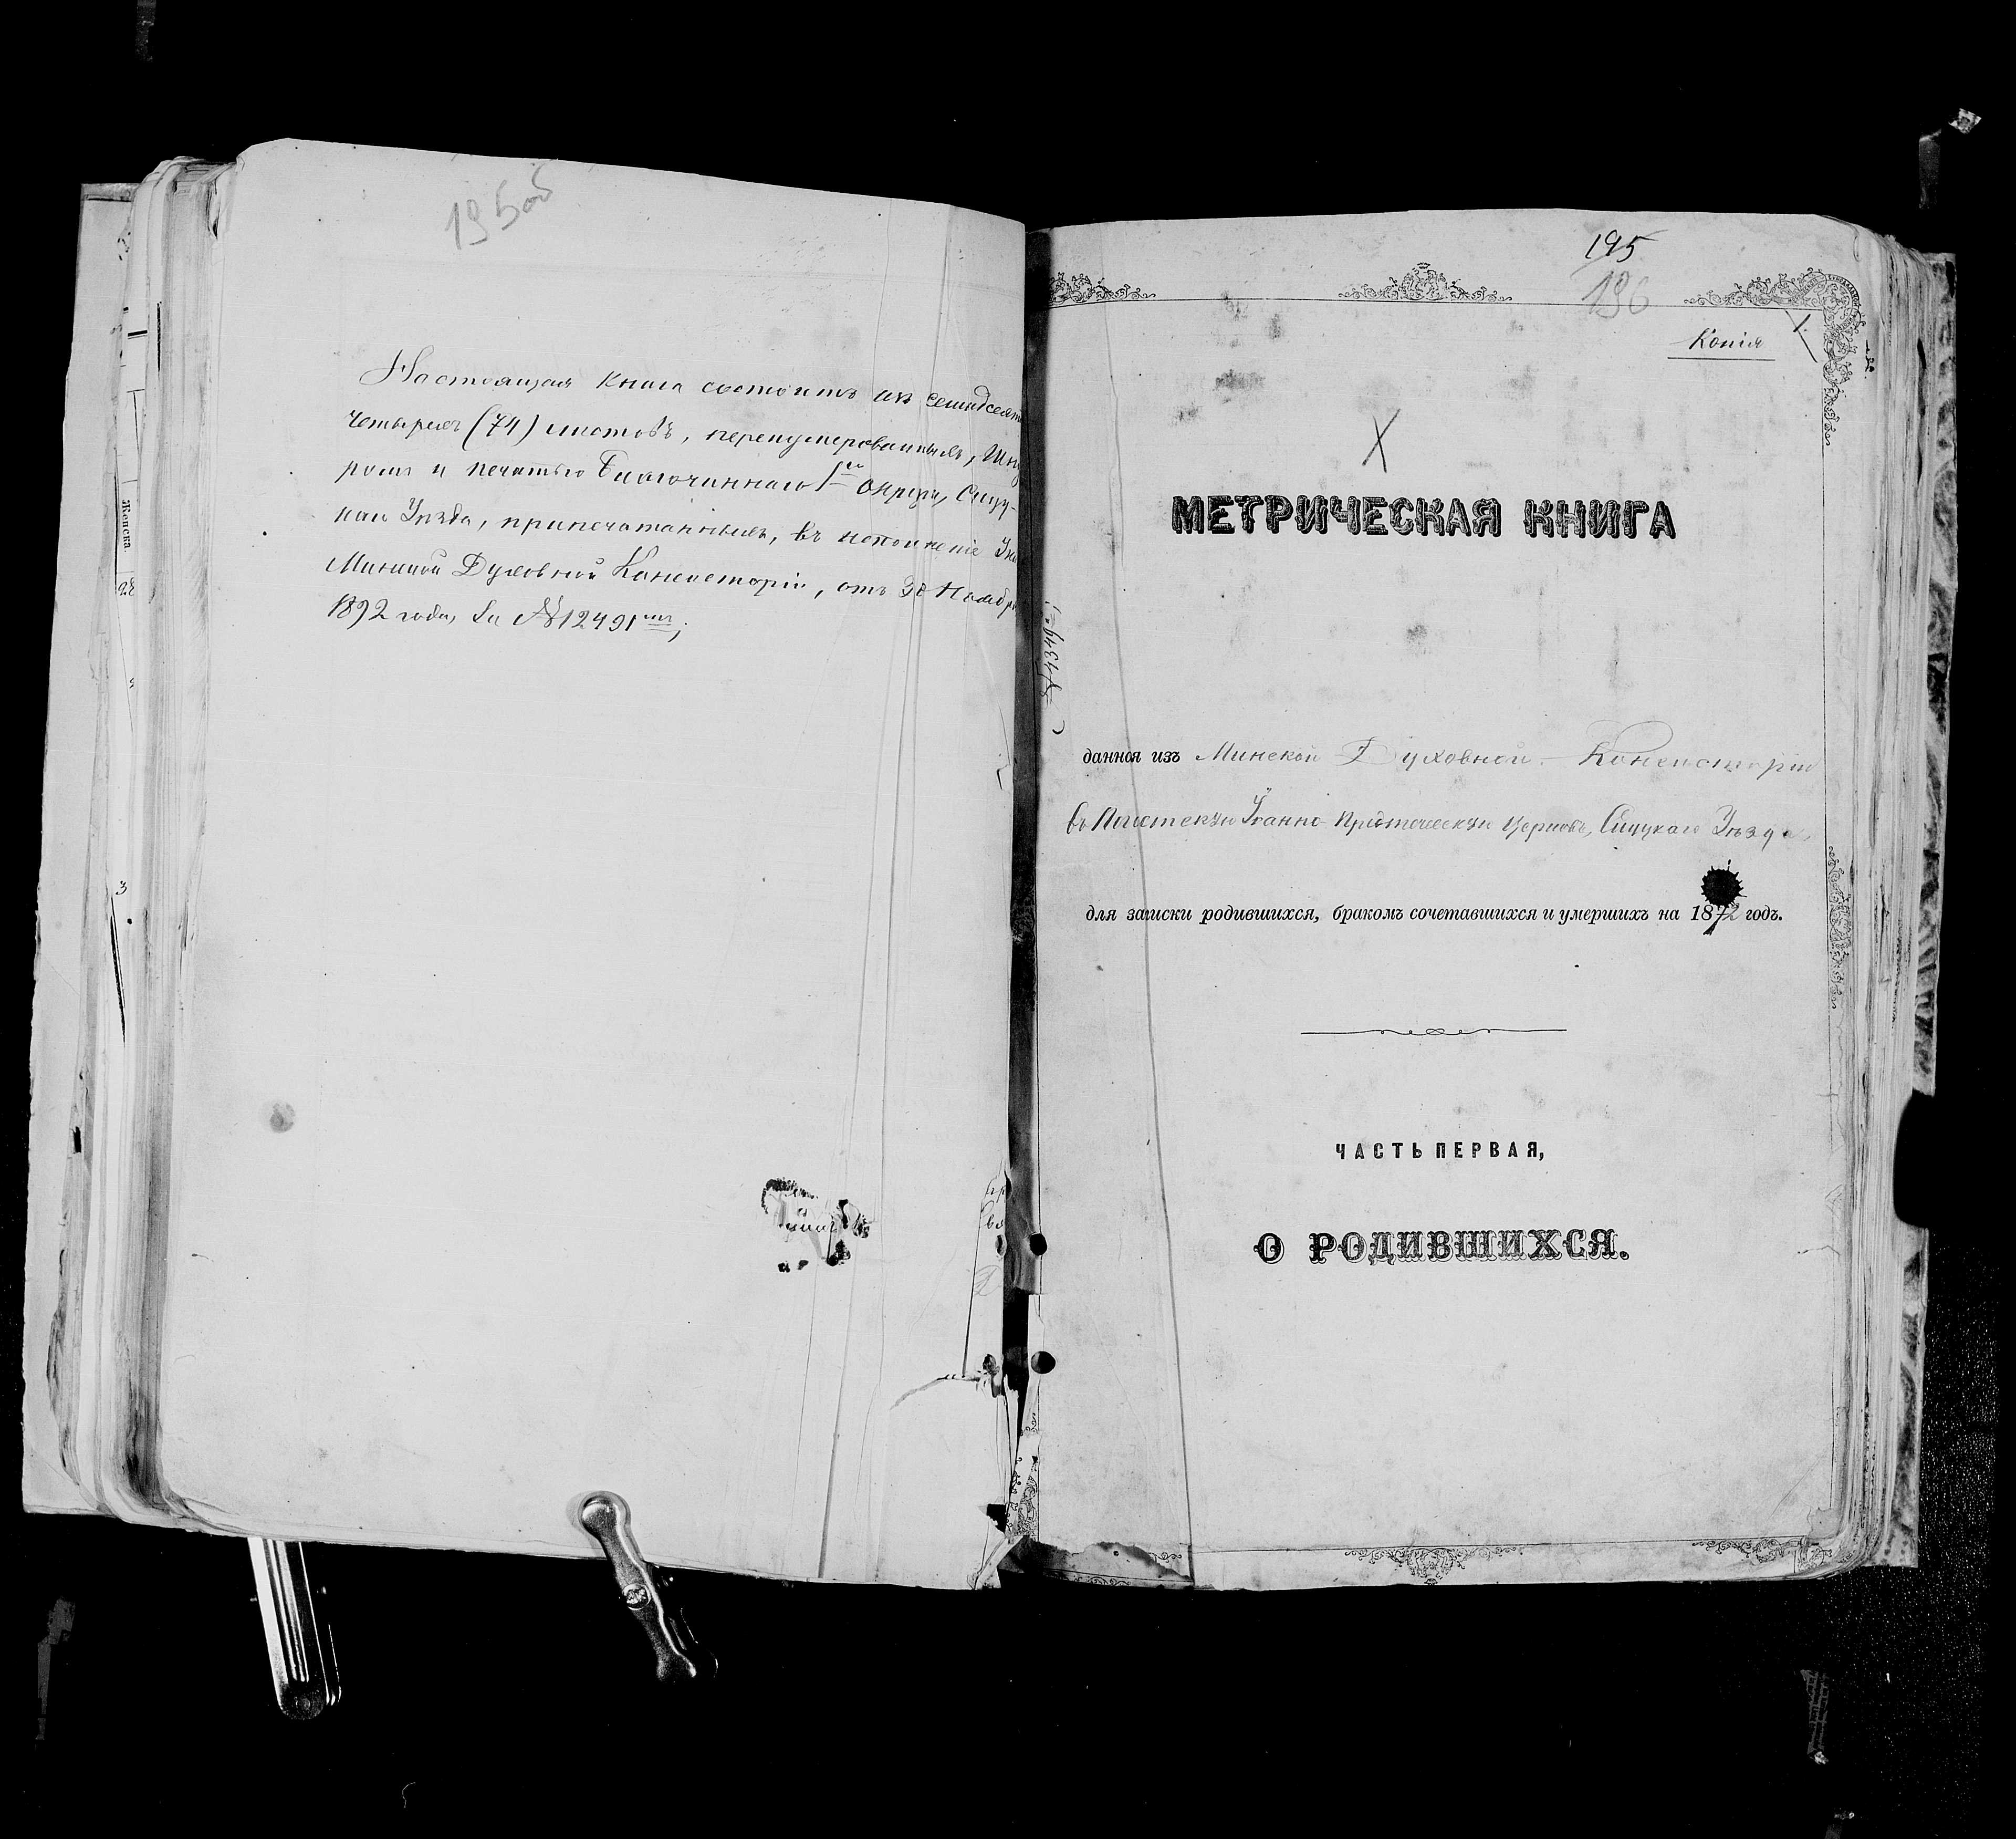 195об
Настоящая книга состоитъ изъ семидесяти
четырехъ (74) листовъ, перенумерованныхъ, шну
ромъ и печатью Благочиннаго 1го Округа, Слуц-
каго Уѣзда, припечатанныхъ, въ исполненіе Ука
Минской Духовной Консисторіи, отъ 30 Ноября
1892 года, за № 12491мъ;
Женска
3
195
196
Копія
1.
X
МЕТРИЧЕСКАЯ КНИГА
данная изъ Минской Духовной Консисторіи
въ Іоанно-Предтеческую Церковь, Слуцкаго Уѣзда,
для записки родившихся, бракомъ сочетавшихся и умершихъ на 1872 годъ.
ЧАСТЬ ПЕРВАЯ,
О РОДИВШИХСЯ.